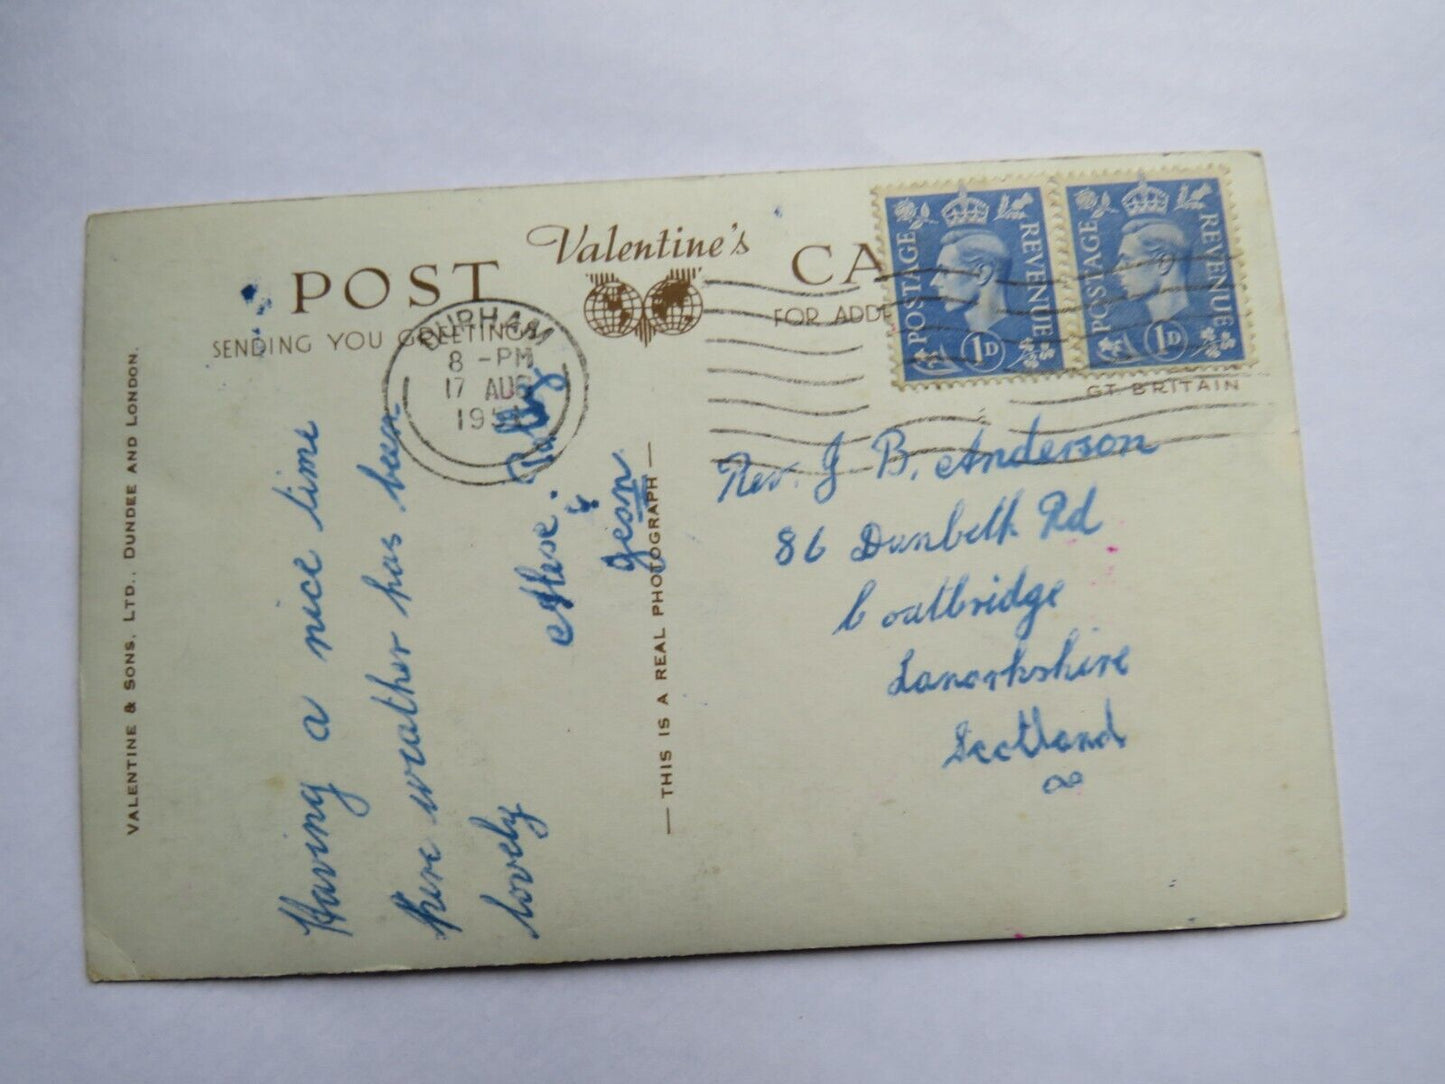 POST Valentine's CA
SENDING YOU GREETINGS
FOR ADD
DURHAM
8 - PM
17 AUG
19
POSTAGE REVENUE
1D
POSTAGE REVENUE
1D
GT. BRITAIN
VALENTINE & SONS, LTD., DUNDEE AND LONDON.
Having a nice time
here weather has been
lovely
&
Jean.
— THIS IS A REAL PHOTOGRAPH —
Rev. J B. Anderson
86 Dunbeth Rd
Coatbridge
Lanarkshire
Scotland